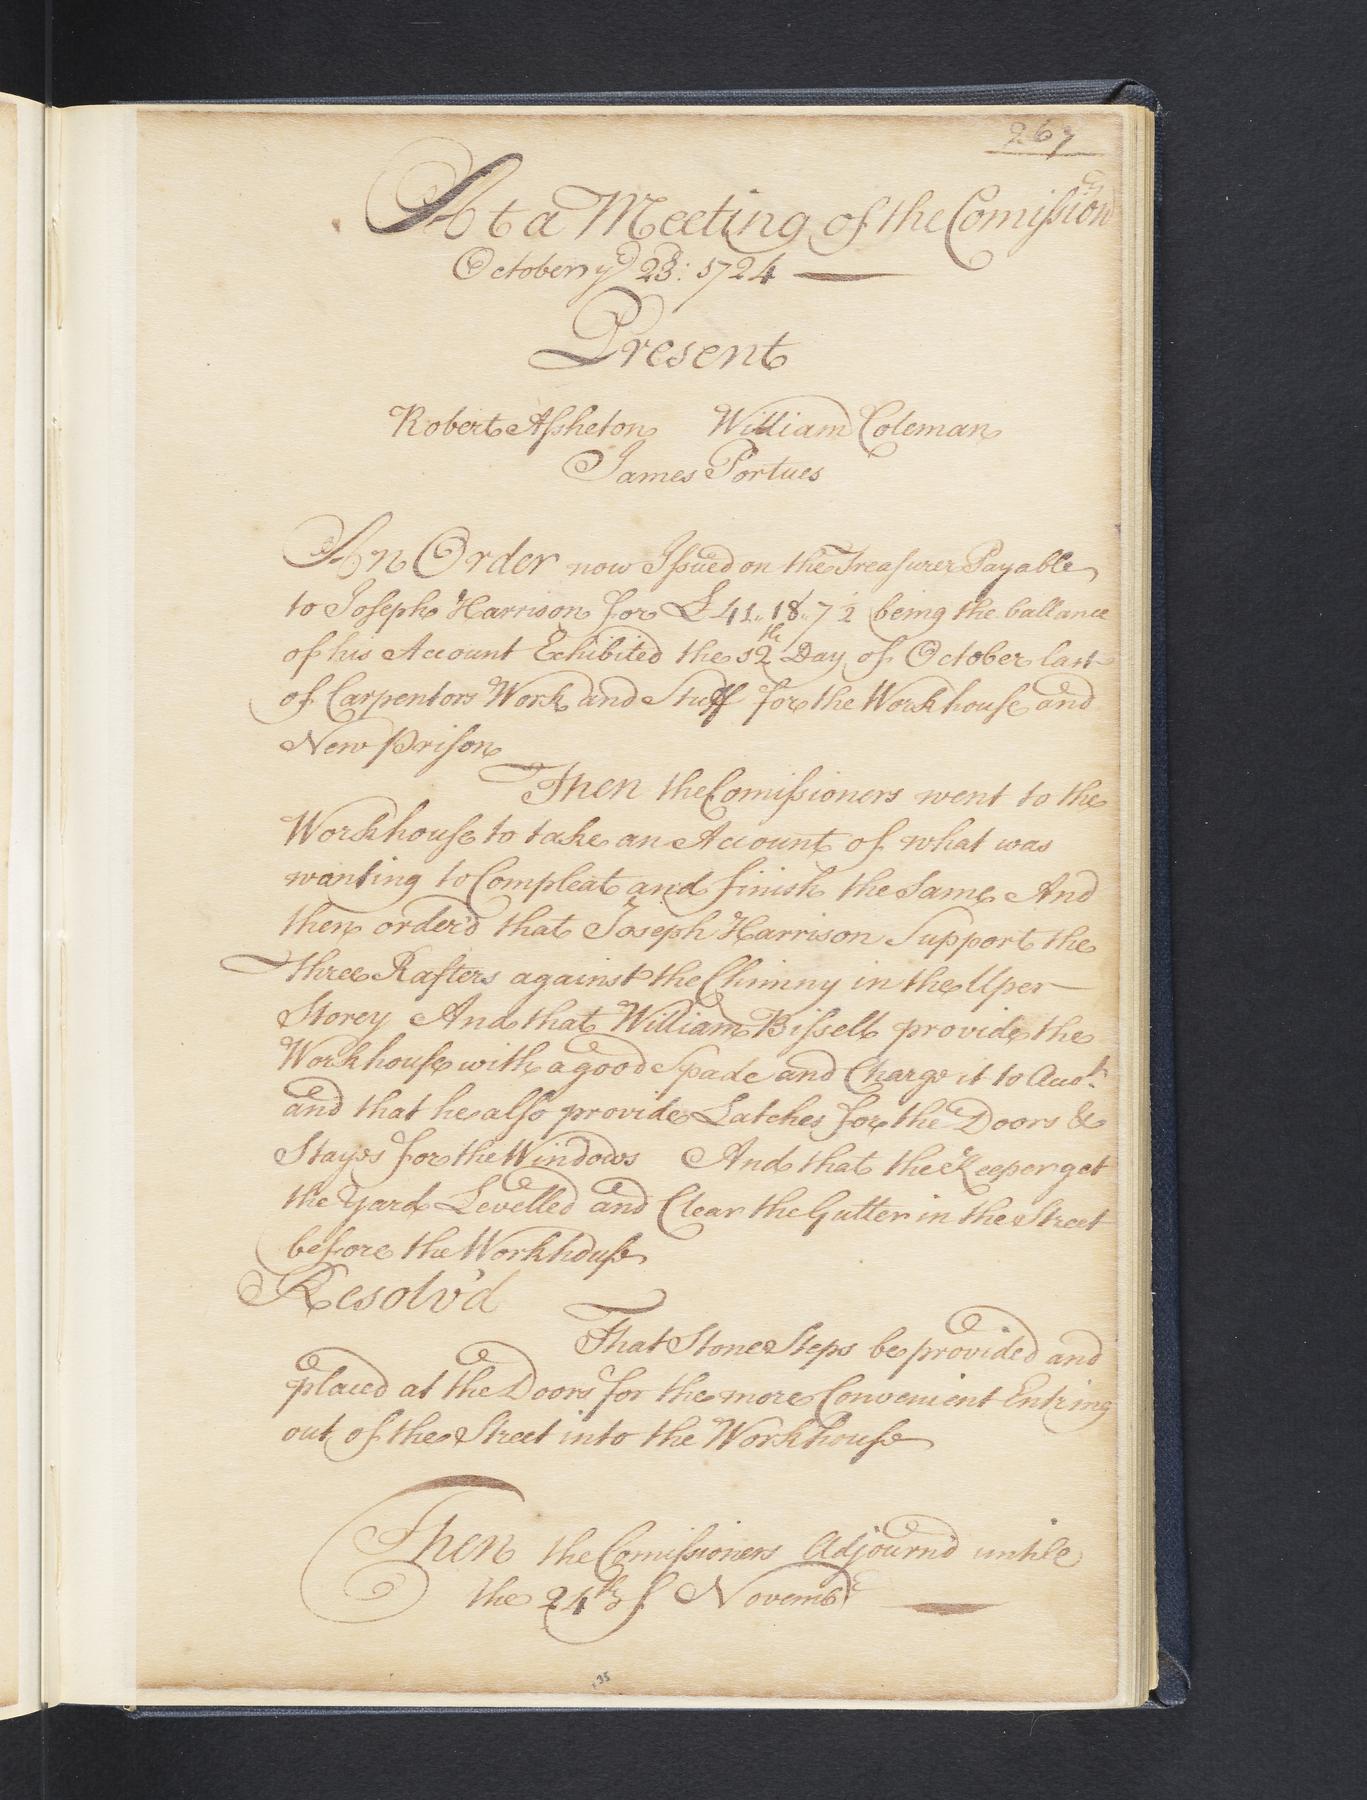 267
At a Meeting of the Comission.rs
October ye 23d: 1724
Present
Robert Assheton William Coleman
James Portues
An Order now Issued on the Treasurer Payable
to Joseph Harrison for £ 41,, 18,, 7 ½ being the ballance
of his Account Exhibited the 12th Day of October last
of Carpentors Work and Stuff for the Workhouse and
New Prison
Then the Comissioners went to the
Workhouse to take an Account of what was
wanting to Compleat and finish the Same And
then order'd that Joseph Harrison Support the
three Rafters against the Chimny in the Uper
Storey And that William Bissell provide the
Workhouse with a good Spade and Charge it to Acot.
and that he also provide Latches for the Doors &
Stayes for the Windows And that the Keeper get
the Yard Levelled and Clear the Gutter in the Street
before the Workhouse
Resolv'd
That Stone Steps be provided and
placed at the Doors for the more Convenient Entring
out of the Street into the Workhouse
Then the Comissioners Adjourn'd untile
the 24th of Novembr
135